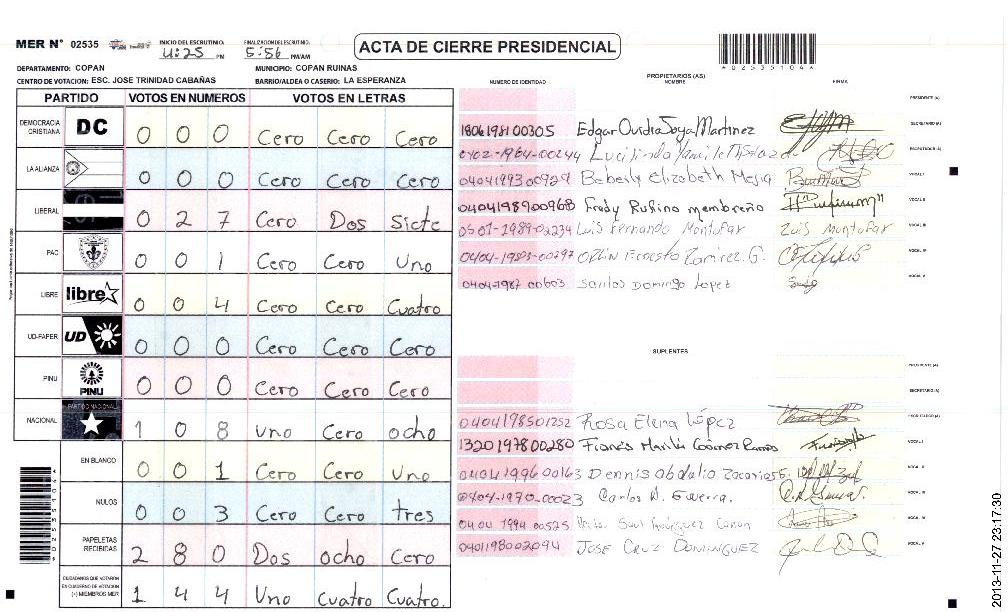 MER Nº 02535 INICIO DEL ESCRUTINIO: 4:25 PM FINALIZACION DEL ESCRUTINIO: 5:56 PM/AM
ACTA DE CIERRE PRESIDENCIAL
*02535104*
DEPARTAMENTO: COPAN MUNICIPIO: COPAN RUINAS
CENTRO DE VOTACION: ESC. JOSE TRINIDAD CABAÑAS BARRIO/ALDEA O CASERIO: LA ESPERANZA
PARTIDO VOTOS EN NUMEROS VOTOS EN LETRAS
DEMOCRACIA CRISTIANA DC 0 0 0 Cero Cero Cero
LA ALIANZA 0 0 0 Cero Cero Cero
LIBERAL 0 2 7 Cero Dos siete
PAC 0 0 1 Cero Cero Uno
LIBRE libre 0 0 4 Cero Cero Cuatro
UD-FAPER UD 0 0 0 Cero Cero Cero
PINU PINU 0 0 0 Cero Cero Cero
NACIONAL PARTIDO NACIONAL 1 0 8 Uno Cero ocho
EN BLANCO 0 0 1 Cero Cero Uno
NULOS 0 0 3 Cero Cero tres
PAPELETAS RECIBIDAS 2 8 0 Dos ocho Cero
CIUDADANOS QUE VOTARON EN CUADERNO DE VOTACION (+) MIEMBROS MER 1 4 4 Uno Cuatro Cuatro.
PROPIETARIOS (AS)
NUMERO DE IDENTIDAD NOMBRE FIRMA
PRESIDENTE (A)
1806198100305 Edgar Ovidio Soya Martinez SECRETARIO (A)
0402-1964-00244 ESCRUTADOR (A)
0404199300929 Beberly Elizabeth Mejia VOCAL I
0404198900968 Fredy Rufino membreño VOCAL II
0501-1989-02234 Luis Fernando Montofar Luis Montofar VOCAL III
0404-1983-00297 Ernesto Ramirez. G. VOCAL IV
0404-1987 00603 Santos Domingo Lopez VOCAL V
SUPLENTES
PRESIDENTE (A)
SECRETARIO (A)
0404198501252 Rosa Elena López ESCRUTADOR (A)
1320197800280 Francis Marili Gomez Ramos VOCAL I
0404 1996 00163 Dennis Obdalio Zacarias E. VOCAL II
0404-1970-00023 Carlos A. Guerra. VOCAL III
0404 1994 00525 Saul Rodriguez VOCAL IV
0401198002094 JOSE CRUZ DOMINGUEZ VOCAL V
2013-11-27 23:17:30